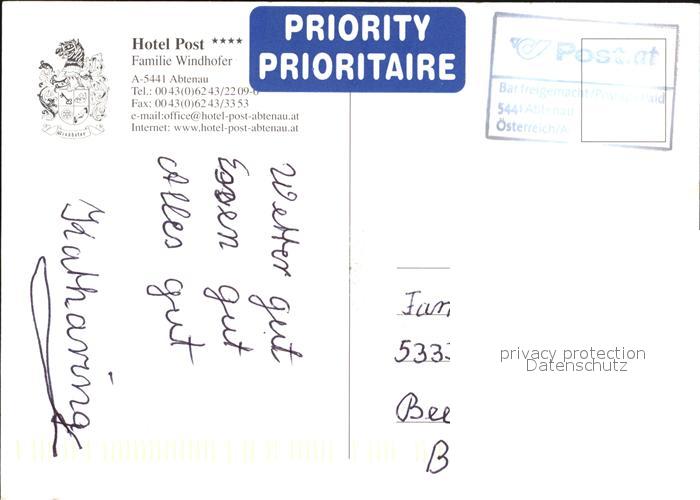 Hotel Post ****
Familie Windhofer
A-5441 Abtenau
Tel.: 0043(0)6243/2209-0
Fax: 0043(0)6243/3353
e-mail:office@hotel-post-abtenau.at
Internet: www.hotel-post-abtenau.at
Windhofer
PRIORITY
PRIORITAIRE
Post.at
Bar freigemacht/Postage paid
5441 Abtenau
Österreich/A
Wetter gut
Essen gut
Alles gut
Katharina
Fam
5333
Bee
B
privacy protection
Datenschutz